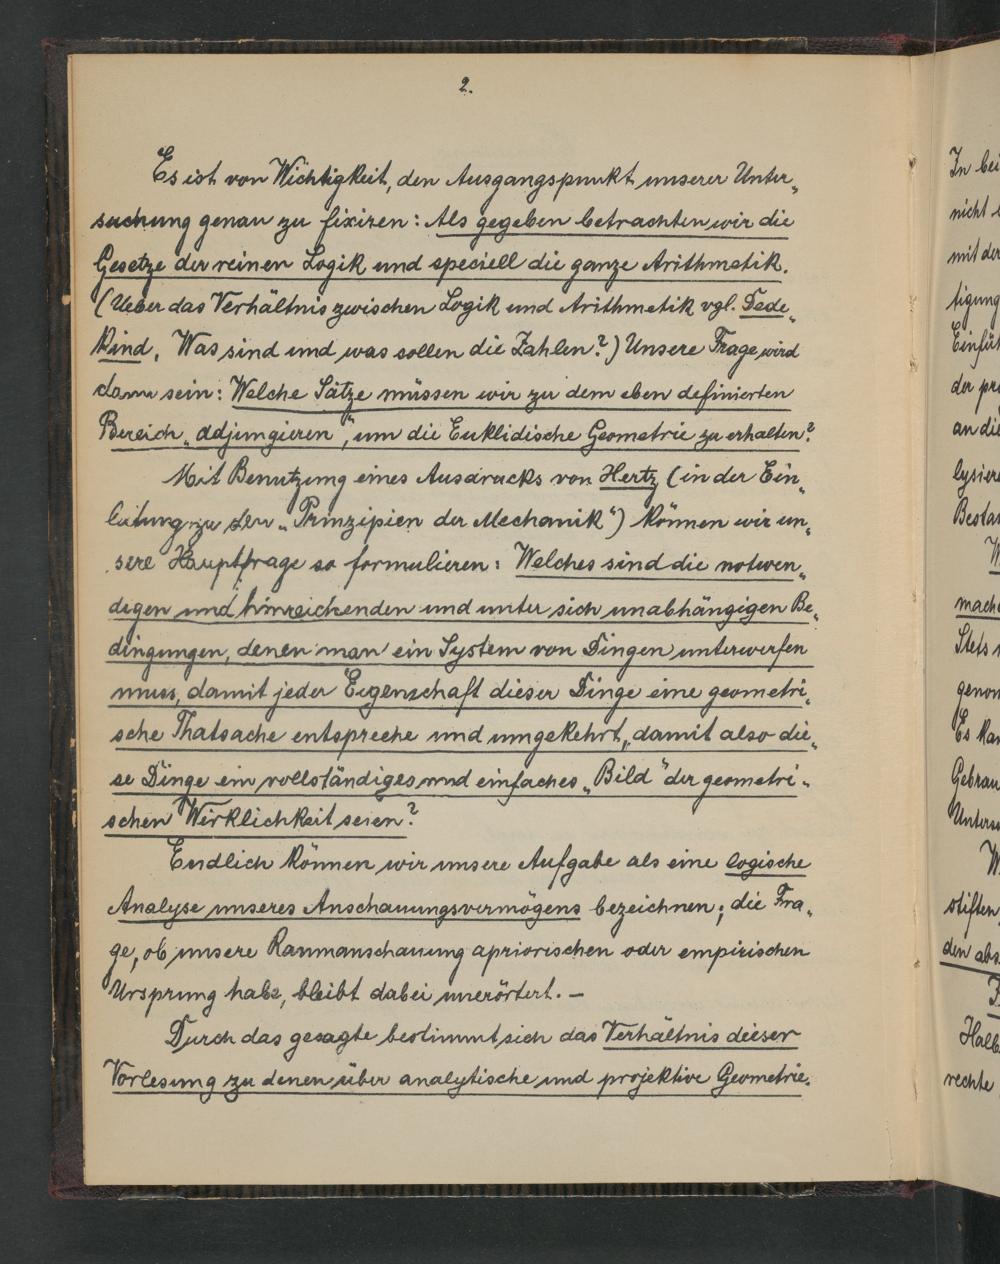 2.
Es ist von Wichtigkeit, den Ausgangspunkt unserer Unter„
suchung genau zu fixiren: Als gegeben betrachten wir die
Gesetze der reinen Logik und speciell die ganze Arithmetik.
(Ueber das Verhältnis zwischen Logik und Arithmetik vgl. Dede„
kind, Was sind und was sollen die Zahlen?) Unsere Frage wird
dann sein: Welche Sätze müssen wir zu dem eben definierten
Bereich „adjungieren“, um die Euklidische Geometrie zu erhalten?
Mit Benutzung eines Ausdrucks von Hertz (in der Ein„
leitung zu den „Prinzipien der Mechanik“) können wir un„
sere Hauptfrage so formulieren: Welches sind die notwen„
digen und hinreichenden und unter sich unabhängigen Be„
dingungen, denen man ein System von Dingen unterwerfen
muss, damit jeder Eigenschaft dieser Dinge eine geometri„
sche Thatsache entspreche und umgekehrt, damit also die„
se Dinge ein vollständiges und einfaches „Bild“ der geometri„
schen Wirklichkeit seien?
Endlich können wir unsere Aufgabe als eine logische
Analyse unseres Anschauungsvermögens bezeichnen; die Fra„
ge, ob unsere Raumanschauung apriorischen oder empirischen
Ursprung habe, bleibt dabei unerörtert. —
Durch das gesagte bestimmt sich das Verhältnis dieser
Vorlesung zu denen über analytische und projektive Geometrie.
In bei
nicht
mit der
tigung
Einfüh
der pr
an die
lysiere
Bestan
W
mach
Stets
genom
Es kan
Gebrau
Unters
W
stiften
den abs
Halb
rechte